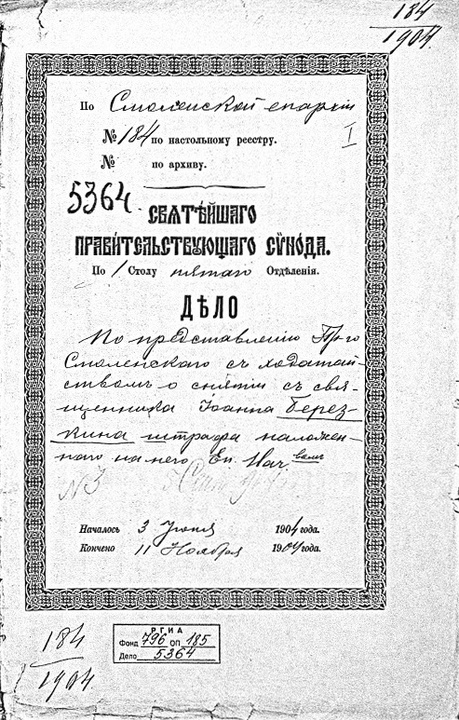 184
1904
По Смоленской епархіи
№ 184 по настольному реестру.
I
№ по архиву.
5364
СВЯТѢЙШАГО
ПРАВИТЕЛЬСТВУЮЩАГО СѴНОДА.
По 1 Столу пятаго Отдѣленія.
ДѢЛО
По представленію Пр-го
Смоленскаго съ ходатай-
ствомъ о снятіи съ свя-
щенника Іоанна Берез-
кина штрафа наложен-
наго на него Еп. Нач.вомъ
№ 3
Началось 3 Іюня 1904 года.
Кончено 11 Ноября 1904 года.
184
1904
РГИА
Фонд 796 оп 185
Дело 5364